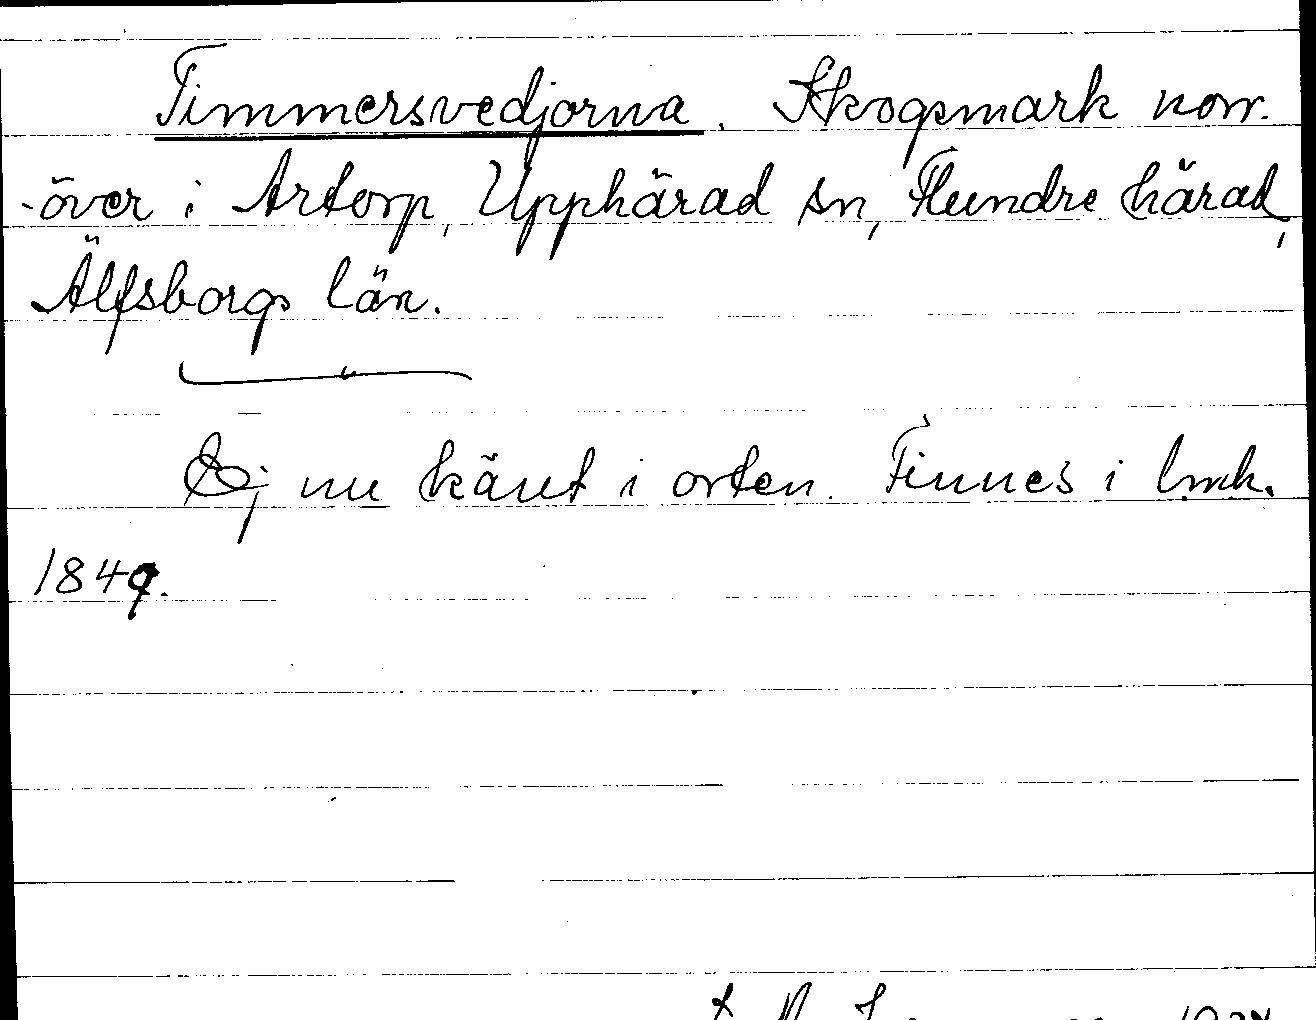 Timmersvedjorna. Skogsmark norr-
över i Artorp, Upphärad sn, Flundre härad,
Älfsborgs län.
Ej nu känt i orten. Finnes i lmk.
1849.